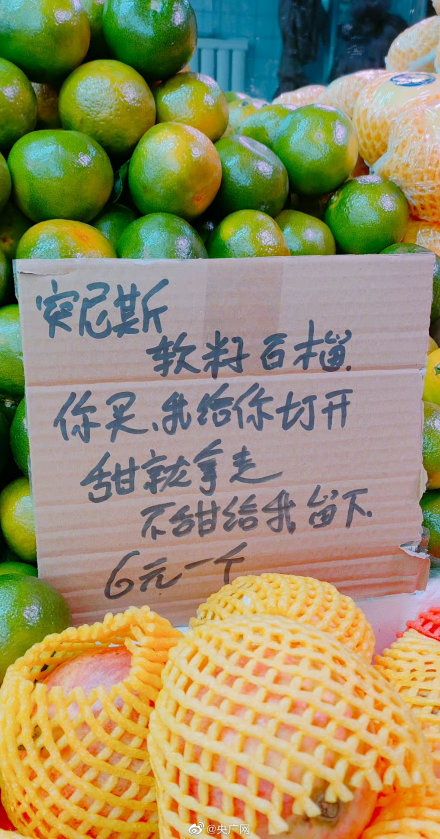 突尼斯
软籽石榴
你买、我给你切开
甜就拿走
不甜给我留下
6元一个
@央广网